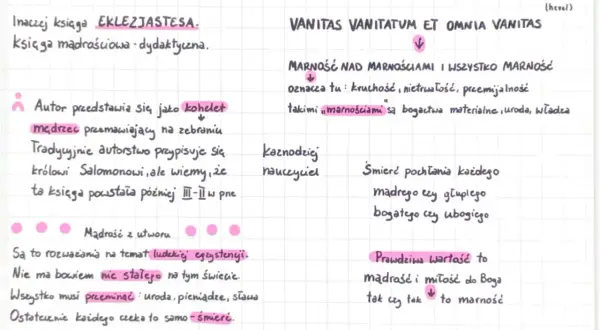 Inaczej księga EKLEZJASTESA.
księga mądrościowa - dydaktyczna.
Autor przedstawia się jako kohelet
mędrzec przemawiający na zebraniu
kaznodziej
nauczyciel
Tradycyjnie autorstwo przypisuje się
królowi Salomonowi, ale wiemy, że
ta księga powstała później III-II w pne
Mądrość z utworu
Są to rozważania na temat ludzkiej egzystencji.
Nie ma bowiem nic stałego na tym świecie.
Wszystko musi przeminąć: uroda, pieniądze, sława
Ostatecznie każdego czeka to samo - śmierć.
(hevel)
VANITAS VANITATVM ET OMNIA VANITAS
MARNOŚĆ NAD MARNOŚCIAMI I WSZYSTKO MARNOŚĆ
oznacza tu: kruchość, nietrwałość, przemijalność
takimi „marnościami" są bogactwa materialne, uroda, władza
Śmierć pochłania każdego
mądrego czy głupiego
bogatego czy ubogiego
Prawdziwa wartość to
mądrość i miłość do Boga
tak czy tak to marność